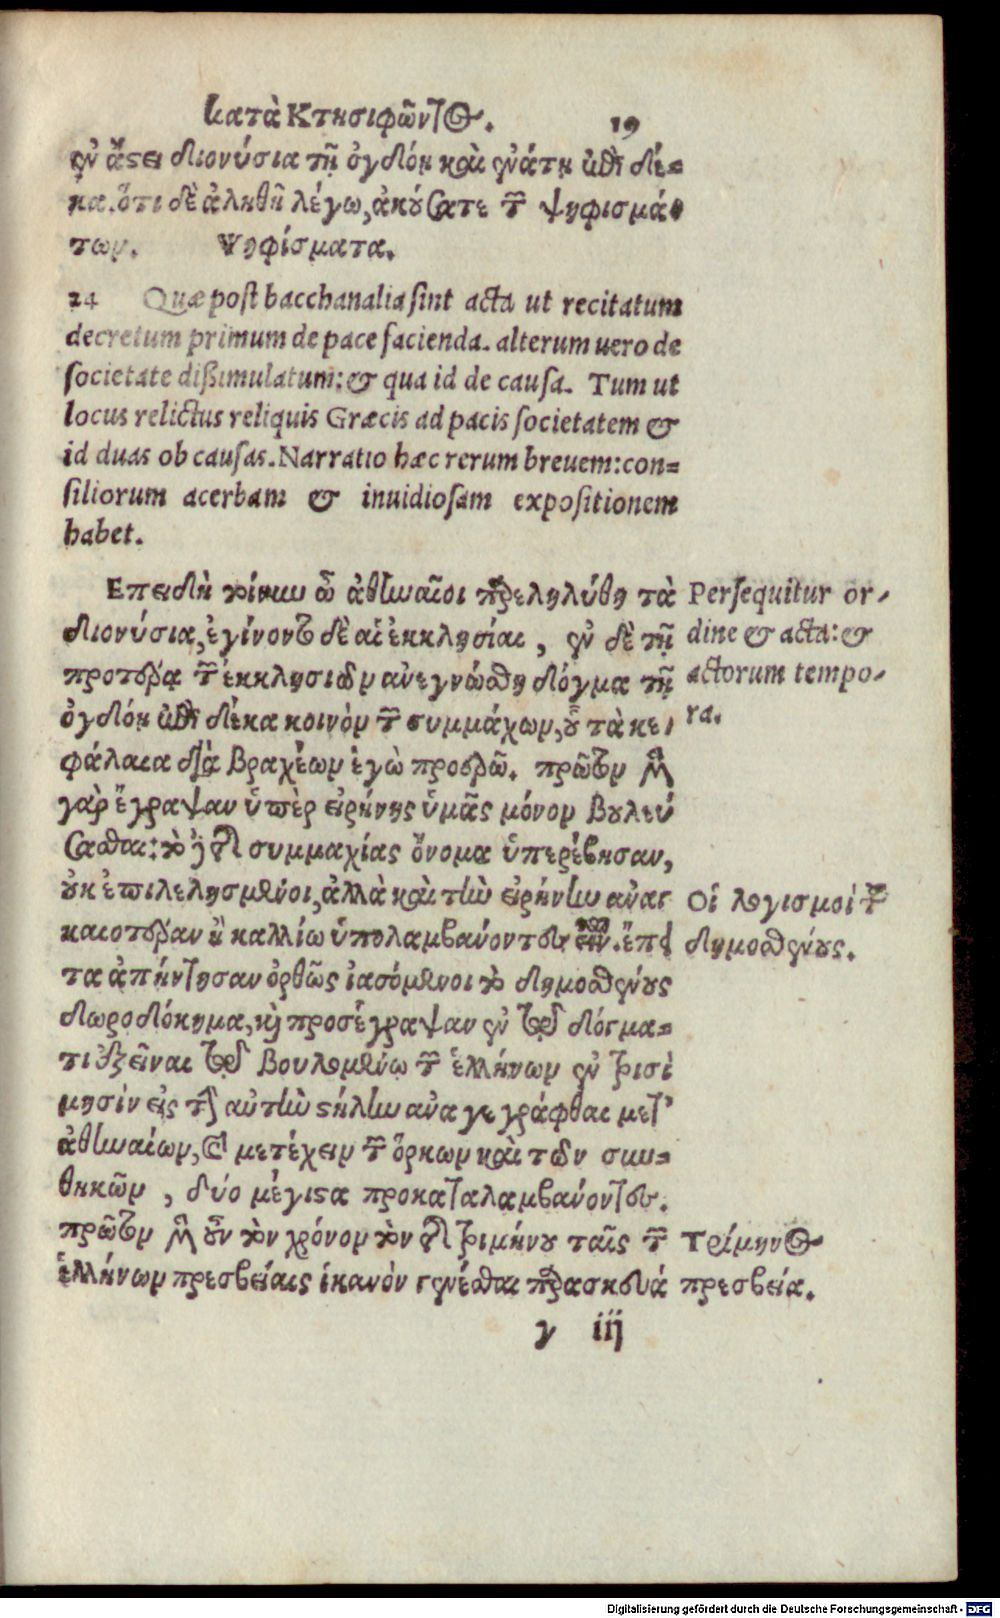 κατὰ Κτησιφῶντος. 19
ἐν ἄστει Διονύσια τῇ ὀγδόῃ καὶ ἐνάτῃ ἐπὶ δέ-
κα. ὅτι δὲ ἀληθῆ λέγω, ἀκούσατε τῶν ψηφισμά-
των. Ψηφίσματα.
24 Quæ post bacchanalia sint acta ut recitatum
decretum primum de pace facienda. alterum uero de
societate dißimulatum: & qua id de causa. Tum ut
locus relictus reliquis Græcis ad pacis societatem &
id duas ob causas. Narratio hæc rerum breuem: con-
siliorum acerbam & inuidiosam expositionem
habet.
Επειδὴ τοίνυν ὦ ἀθηναῖοι παρεληλύθη τὰ
διονύσια, ἐγίνοντο δὲ αἱ ἐκκλησίαι, ἐν δὲ τῇ
προτέρᾳ τῶν ἐκκλησιῶν ἀνεγνώσθη δόγμα τῇ
ὀγδόῃ ἐπὶ δέκα κοινὸν τῶν συμμάχων, οὗ τὰ κε-
φάλαια διὰ βραχέων ἐγὼ προερῶ. πρῶτον μὲν
γὰρ ἔγραψαν ὑπὲρ εἰρήνης ὑμᾶς μόνον βουλεύ
σασθαι: τὸ δὲ τῆς συμμαχίας ὄνομα ὑπερέβησαν,
οὐκ ἐπιλελησμένοι, ἀλλὰ καὶ τὴν εἰρήνην ἀναγ
καιοτέραν ἢ καλλίω ὑπολαμβάνοντες εἶναι. ἔπει
τα ἀπήντησαν ὀρθῶς ἰασόμενοι τὸ δημοσθένους
δωροδόκημα, καὶ προσέγραψαν ἐν τῷ δόγμα-
τι ἐξεῖναι τῷ βουλομένῳ τῶν ἑλλήνων ἐν τρισὶ
μησὶν εἰς τὴν αὐτὴν στήλην ἀναγεγράφθαι μετ’
ἀθηναίων, καὶ μετέχειν τῶν ὅρκων καὶ τῶν συν-
θηκῶν, δύο μέγιστα προκαταλαμβάνοντες.
πρῶτον μὲν οὖν τὸν χρόνον τὸν τῆς τριμήνου ταῖς τῶν
ἑλλήνων πρεσβείαις ἱκανὸν γενέσθαι παρασκευά
Persequitur or-
dine & acta: &
actorum tempo-
ra.
Οἱ λογισμοὶ τοῦ
δημοσθένους.
Τρίμηνος
πρεσβεία.
γ iij
Digitalisierung gefördert durch die Deutsche Forschungsgemeinschaft - DFG